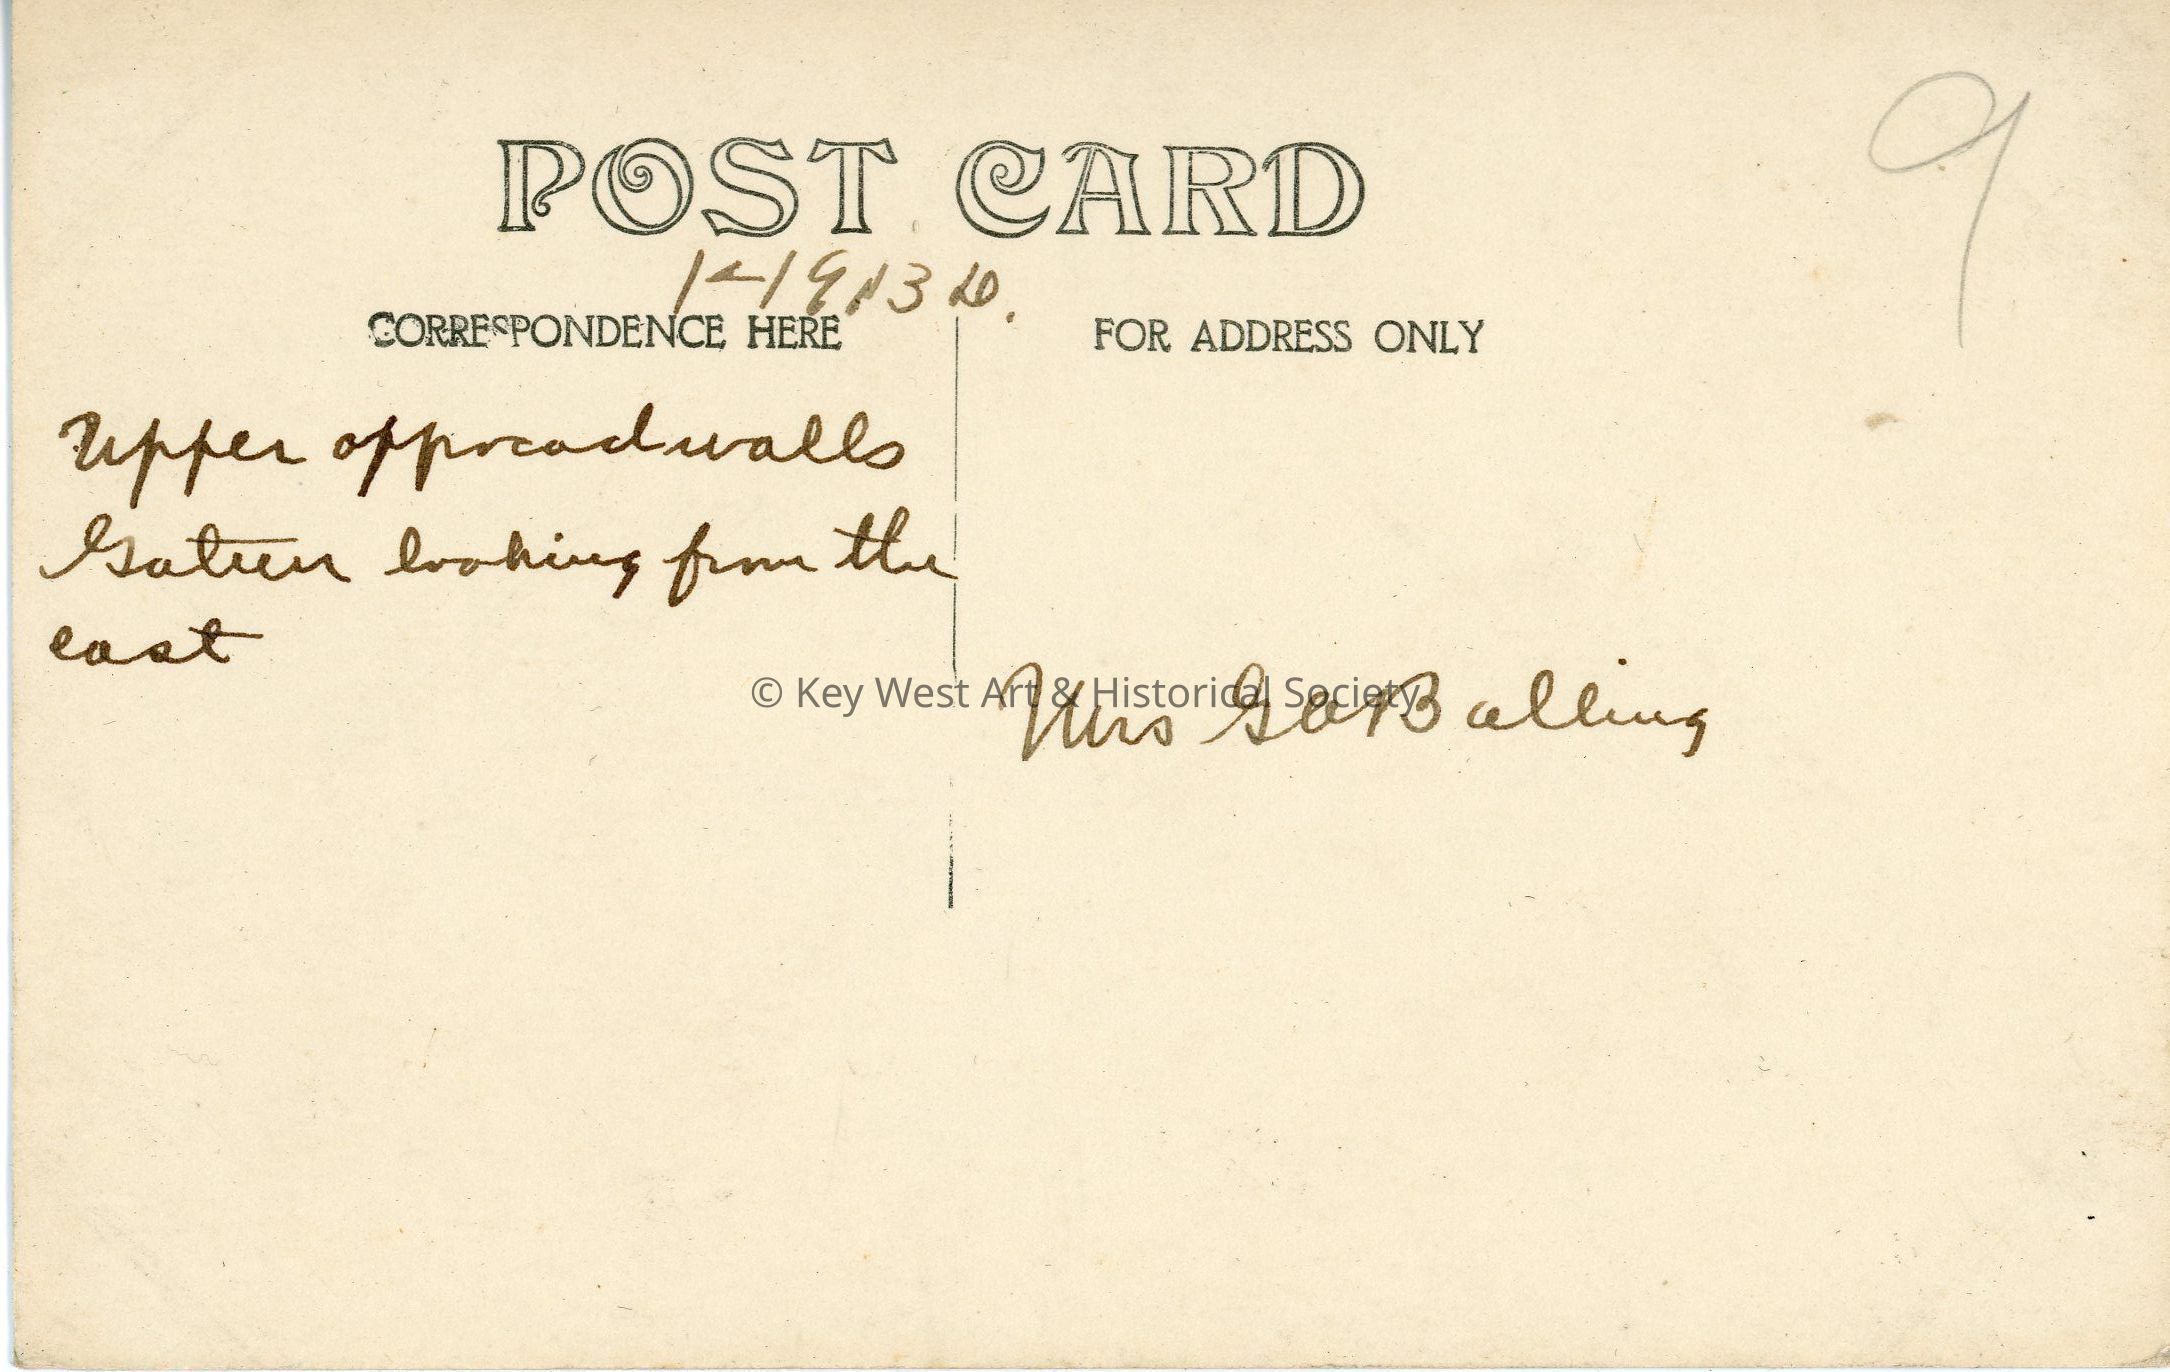 9
POST CARD
CORRESPONDENCE HERE
FOR ADDRESS ONLY
Upper approadwalls
Gatun looking from the
east
© Key West Art & Historical Society
Mrs G A Balling